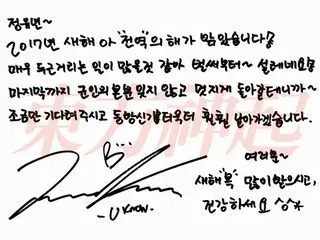 정유년~
2017년 새해 아 "전역"의 해가 밝았습니다
매우 두근거리는 일이 많을것 같아 벌써부터~ 설레네요
마지막까지 군인의 본분 잊지 않고 멋지게 돌아갈테니까~
조금만 기다려주시고 동방신기로부터 훨훨 날아가겠습니다.
B...
U KNOW.
여러분~
새해 "복" 많이 받으시고,
건강하세요
東方神起